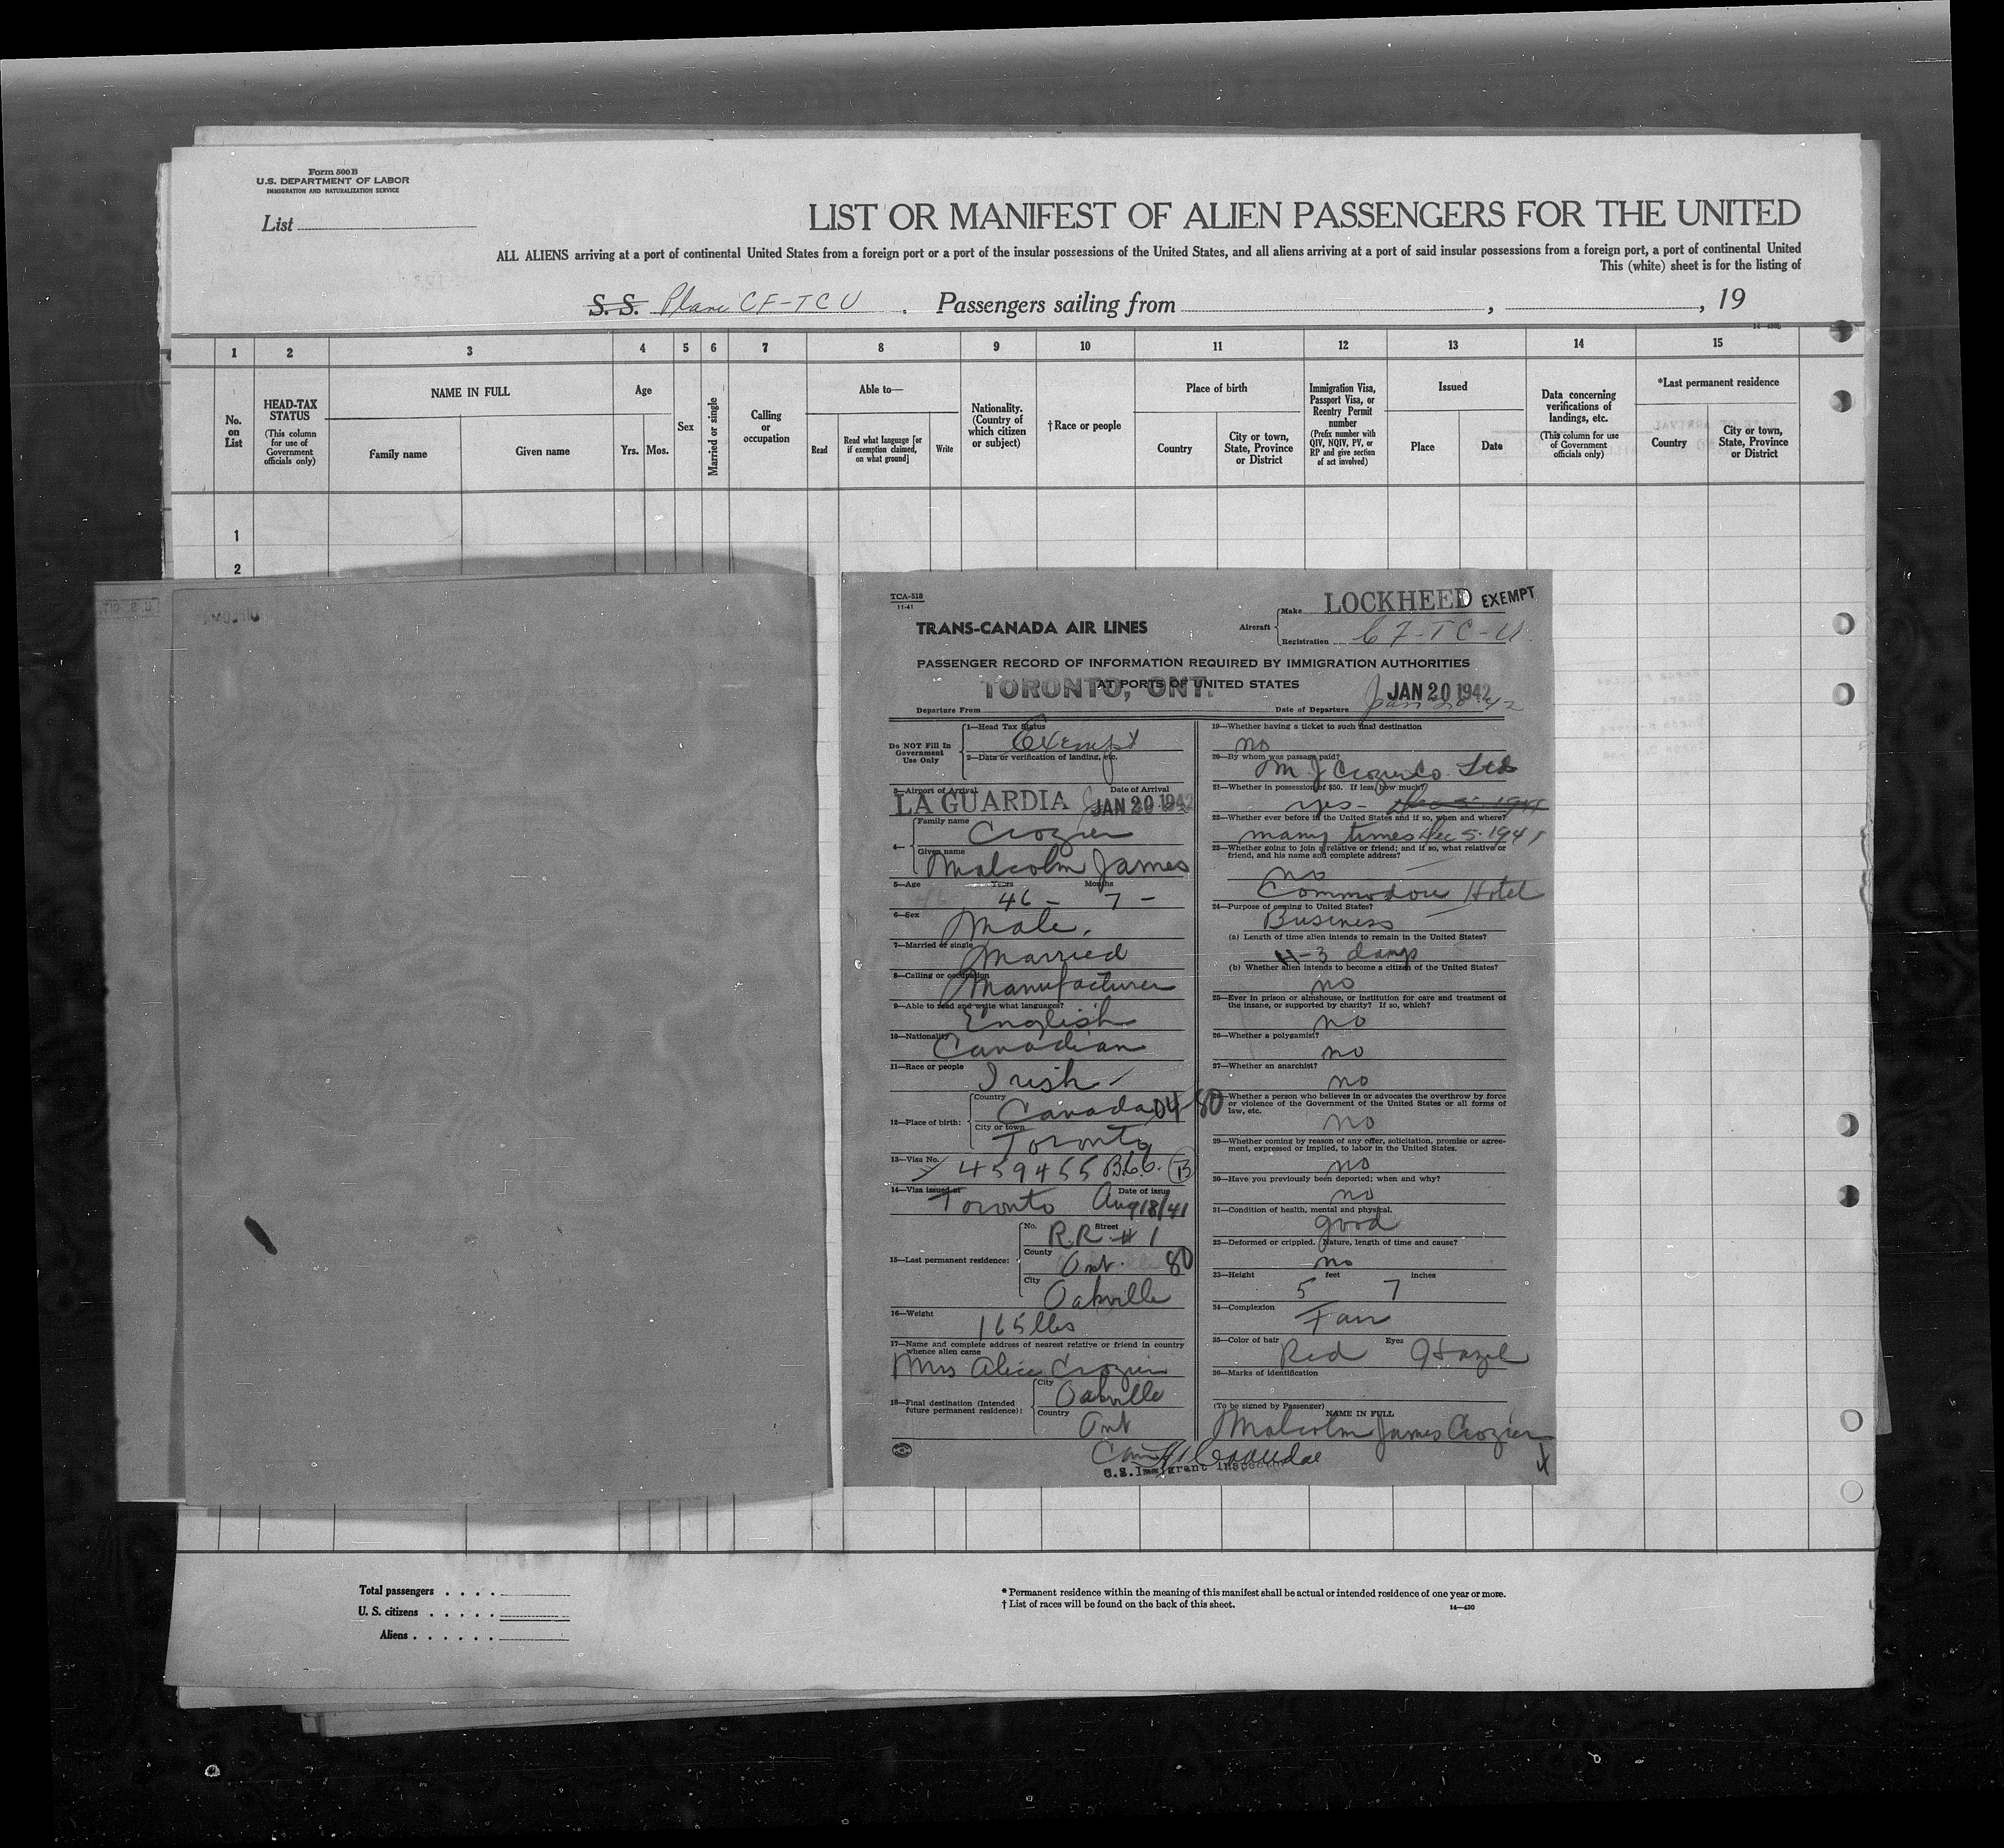 Form 500 B
U.S. DEPARTMENT OF LABOR
IMMIGRATION AND NATURALIZATION SERVICE
List
LIST OR MANIFEST OF ALIEN PASSENGERS FOR THE UNITED
ALL ALIENS arriving at a port of continental United States from a foreign port or a port of the insular possessions of the United States, and all aliens arriving at a port of said insular possessions from a foreign port, a port of continental United
This (white) sheet is for the listing of
S. S. Plane CF-TCU . Passengers sailing from , , 19
1 2 3 4 5 6 7 8 9 10 11 12 13 14 15
No. on List
HEAD-TAX STATUS
(This column for use of Government officials only)
NAME IN FULL
Family name Given name
Age
Yrs. Mos.
Sex
Married or single
Calling or occupation
Able to—
Read
Read what language [or if exemption claimed, on what ground]
Write
Nationality. (Country of which citizen or subject)
†Race or people
Place of birth
Country
City or town, State, Province or District
Immigration Visa, Passport Visa, or Reentry Permit number
(Prefix number with QIV, NQIV, PV, or RP and give section of act involved)
Issued
Place Date
Data concerning verifications of landings, etc.
(This column for use of Government officials only)
*Last permanent residence
Country
City or town, State, Province or District
1
2
TCA-518
11-41
TRANS-CANADA AIR LINES
Aircraft
Make LOCKHEED EXEMPT
Registration CF-TC-U.
PASSENGER RECORD OF INFORMATION REQUIRED BY IMMIGRATION AUTHORITIES
AT PORTS OF UNITED STATES
TORONTO, ONT. JAN 20 1942
Departure From Date of Departure Jan 20 42
Do NOT Fill In Government Use Only
1—Head Tax Status
Exempt
2—Data or verification of landing, etc.
3—Airport of Arrival Date of Arrival
LA GUARDIA JAN 20 1942
4—
Family name
Crozier
Given name
Malcolm James
5—Age Years Months
46 - 7 -
6—Sex
Male.
7—Married or single
Married
8—Calling or occupation
Manufacturer
9—Able to read and write what languages?
English
10—Nationality
Canadian
11—Race or people
Irish
12—Place of birth:
Country
Canada 04-80
City or town
Toronto
13—Visa No.
459455 B.C.C. B
14—Visa issued at Date of issue
Toronto Aug 18/41
15—Last permanent residence:
No. Street
R.R. # 1
County
Ont. 80
City
Oakville
16—Weight
165 lbs
17—Name and complete address of nearest relative or friend in country whence alien came
Mrs Alice Crozier
18—Final destination (Intended future permanent residence):
City
Oakville
Country
Ont
19—Whether having a ticket to such final destination
no
20—By whom was passage paid?
M J Crozier Co. Ltd
21—Whether in possession of $50. If less, how much?
yes - Dec 5. 1941
22—Whether ever before in the United States and if so, when and where?
many times Dec 5. 1941
23—Whether going to join a relative or friend; and if so, what relative or friend, and his name and complete address?
no
Commodore Hotel
24—Purpose of coming to United States?
Business
(a) Length of time alien intends to remain in the United States?
-3 days
(b) Whether alien intends to become a citizen of the United States?
no
25—Ever in prison or almshouse, or institution for care and treatment of the insane, or supported by charity? If so, which?
no
26—Whether a polygamist?
no
27—Whether an anarchist?
no
28—Whether a person who believes in or advocates the overthrow by force or violence of the Government of the United States or all forms of law, etc.
no
29—Whether coming by reason of any offer, solicitation, promise or agreement, expressed or implied, to labor in the United States.
no
30—Have you previously been deported; when and why?
no
31—Condition of health, mental and physical.
good
32—Deformed or crippled. Nature, length of time and cause?
no
33—Height feet inches
5 7
34—Complexion
Fair
35—Color of hair Eyes
Red Hazel
36—Marks of identification
(To be signed by Passenger)
NAME IN FULL
Malcolm James Crozier
U.S. Immigrant Inspector
Total passengers . . . .
U. S. citizens . . . . .
Aliens . . . . . .
* Permanent residence within the meaning of this manifest shall be actual or intended residence of one year or more.
† List of races will be found on the back of this sheet.
14—430